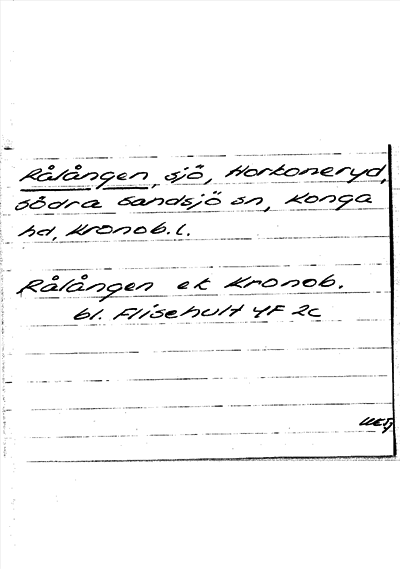 Rålången, sjö, Hortoneryd,
södra Sandsjö sn, Konga
hd, Kronob.l.
Rålången ek Kronob.
bl. Flisehult 4F 2c